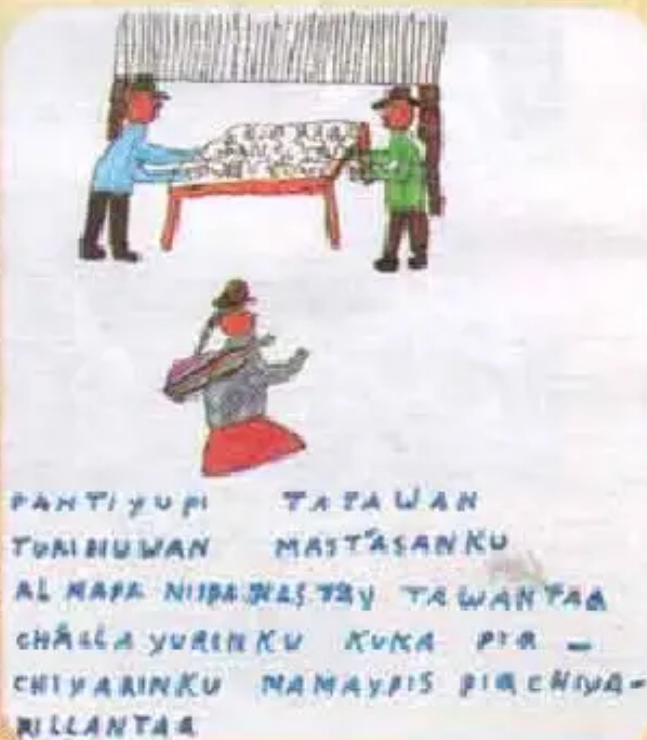 PANTIYUPI TATAWAN
TURINUWAN MAST'ASANKU
AL MAPA TAWANTAQ
CHÁLLAYURINKU KUKA PIQ -
CHIYARINKU MAMAYPIS PIQCHIYA-
RILLANTAQ